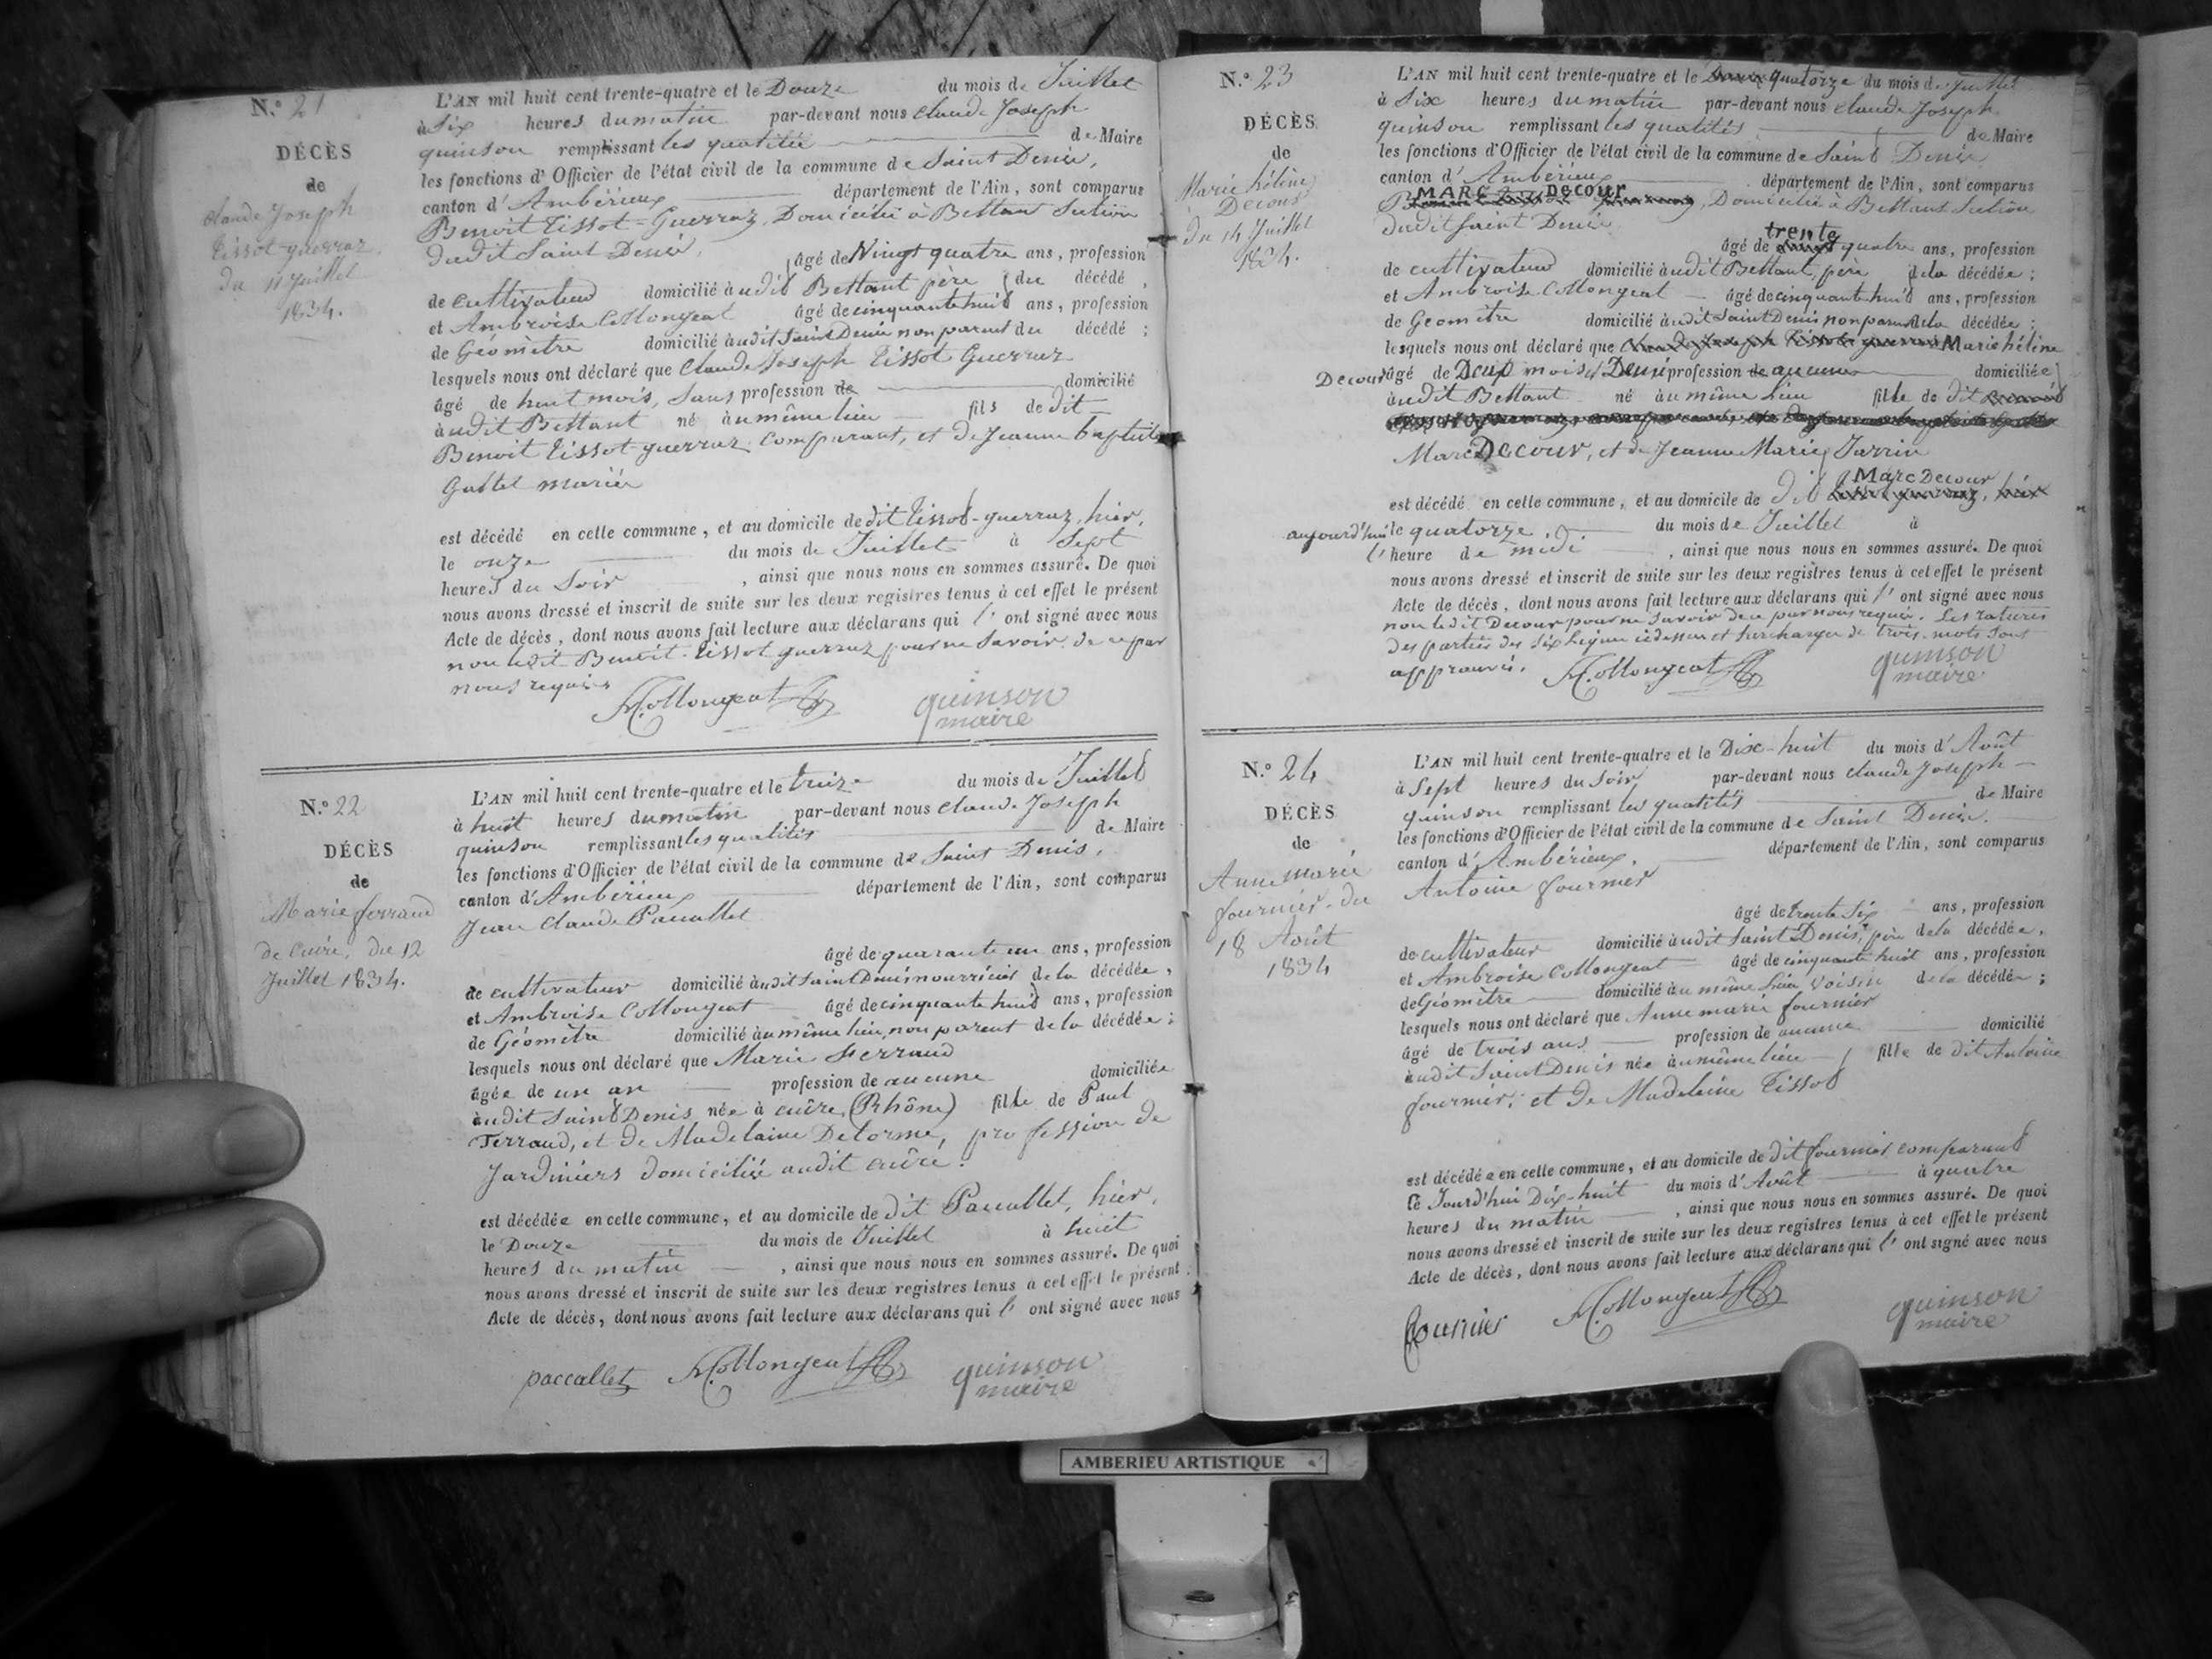 N.º 21
DÉCÈS
de
claude Joseph
tissot-guerraz
du 11 Juillet
1834.
L'AN mil huit cent trente-quatre et le Douze du mois de Juillet
à Six heures du matin par-devant nous claude Joseph
quinson remplissant les qualités de Maire
les fonctions d'Officier de l'état civil de la commune de Saint Denis,
canton d'Ambérieux département de l'Ain, sont comparus
Benoit tissot-Guerraz, Domicilié à Bettant Section
dudit Saint Denis, âgé de Vingt quatre ans, profession
de cultivateur domicilié audit Bettant père du décédé,
et Ambroise Collongeat âgé de cinquante huit ans, profession
de Géomètre domicilié audit Saint Denis non parent du décédé ;
lesquels nous ont déclaré que Claude Joseph tissot Guerraz
âgé de huit mois, Sans profession de domicilié
audit Bettant né au même lieu fils de dit
Benoit tissot-guerraz comparant, et de Jeanne baptiste
Guttel mariés
est décédé en cette commune, et au domicile de dit tissot-guerraz, hier,
le onze du mois de Juillet à Sept
heures du Soir, ainsi que nous nous en sommes assuré. De quoi
nous avons dressé et inscrit de suite sur les deux registres tenus à cet effet le présent
Acte de décès, dont nous avons fait lecture aux déclarans qui l' ont signé avec nous
non ledit Benoit tissot guerraz pour ne Savoir de ce par
nous requis
Collongeat quinson
maire
N.º 22
DÉCÈS
de
Marie ferraud
de cuire, du 12
Juillet 1834.
L'AN mil huit cent trente-quatre et le treize du mois de Juillet
à huit heures du matin par-devant nous claude Joseph
quinson remplissant les qualités de Maire
les fonctions d'Officier de l'état civil de la commune de Saint Denis,
canton d'Ambérieux département de l'Ain, sont comparus
Jean Claude Paccallet
âgé de quarante un ans, profession
de cultivateur domicilié audit Saint Denis nourricier de la décédée,
et Ambroise Collongeat âgé de cinquante huit ans, profession
de Géomètre domicilié au même lieu, non parent de la décédée ;
lesquels nous ont déclaré que Marie Ferraud
âgée de un an profession de aucune domiciliée
audit Saint Denis née à cuire (Rhône) fille de Paul
Ferraud, et de Madelaine Delorme, profession de
Jardiniers domiciliés audit cuire.
est décédée en cette commune, et au domicile de dit Paccallet, hier,
le Douze du mois de Juillet à huit
heures du matin, ainsi que nous nous en sommes assuré. De quoi
nous avons dressé et inscrit de suite sur les deux registres tenus à cet effet le présent
Acte de décès, dont nous avons fait lecture aux déclarans qui l' ont signé avec nous
paccallet Collongeat quinson
maire
N.º 23
DÉCÈS
de
Marie héline
Decour
du 14 Juillet
1834.
L'AN mil huit cent trente-quatre et le quatorze du mois de Juillet
à Six heures du matin par-devant nous claude Joseph
quinson remplissant les qualités de Maire
les fonctions d'Officier de l'état civil de la commune de Saint Denis
canton d'Ambérieux département de l'Ain, sont comparus
MARC Decour, Domicilié à Bettant Section
dudit Saint Denis
âgé de trente quatre ans, profession
de cultivateur domicilié audit Bettant, père de la décédée ;
et Ambroise Collongeat âgé de cinquante huit ans, profession
de Géomètre domicilié audit Saint Denis non parent de la décédée ;
lesquels nous ont déclaré que Marie héline
Decour âgé de Deux mois, profession de aucune domiciliée
audit Bettant né au même lieu fille de dit
Marc Decour, et de Jeanne Marie Jarrin
est décédé en cette commune, et au domicile de dit Marc Decour
aujourd'hui le quatorze du mois de Juillet à
l'heure de midi, ainsi que nous nous en sommes assuré. De quoi
nous avons dressé et inscrit de suite sur les deux registres tenus à cet effet le présent
Acte de décès, dont nous avons fait lecture aux déclarans qui l' ont signé avec nous
non ledit Decour pour ne Savoir de ce par nous requis. Les ratures
des parties des Six lignes cidessus et Surcharges de trois mots Sont
approuvés. Collongeat quinson
maire
N.º 24
DÉCÈS
de
Anne marie
fournier du
18 Août
1834
L'AN mil huit cent trente-quatre et le Dix-huit du mois d'Août
à Sept heures du Soir par-devant nous claude Joseph
quinson remplissant les qualités de Maire
les fonctions d'Officier de l'état civil de la commune de Saint Denis.
canton d'Ambérieux, département de l'Ain, sont comparus
Antoine fournier
âgé de trente Six ans, profession
de cultivateur domicilié audit Saint Denis, père de la décédée,
et Ambroise Collongeat âgé de cinquante huit ans, profession
de Géomètre domicilié au même lieu Voisin de la décédée ;
lesquels nous ont déclaré que Anne marie fournier
âgé de trois ans profession de aucune domicilié
audit Saint Denis née au même lieu, fille de dit Antoine
fournier, et de Madelaine Tissot
est décédée en cette commune, et au domicile de dit fournier comparant
le Jourd'hui Dix-huit du mois d'Août à quatre
heures du matin, ainsi que nous nous en sommes assuré. De quoi
nous avons dressé et inscrit de suite sur les deux registres tenus à cet effet le présent
Acte de décès, dont nous avons fait lecture aux déclarans qui l' ont signé avec nous
fournier Collongeat quinson
maire
AMBERIEU ARTISTIQUE